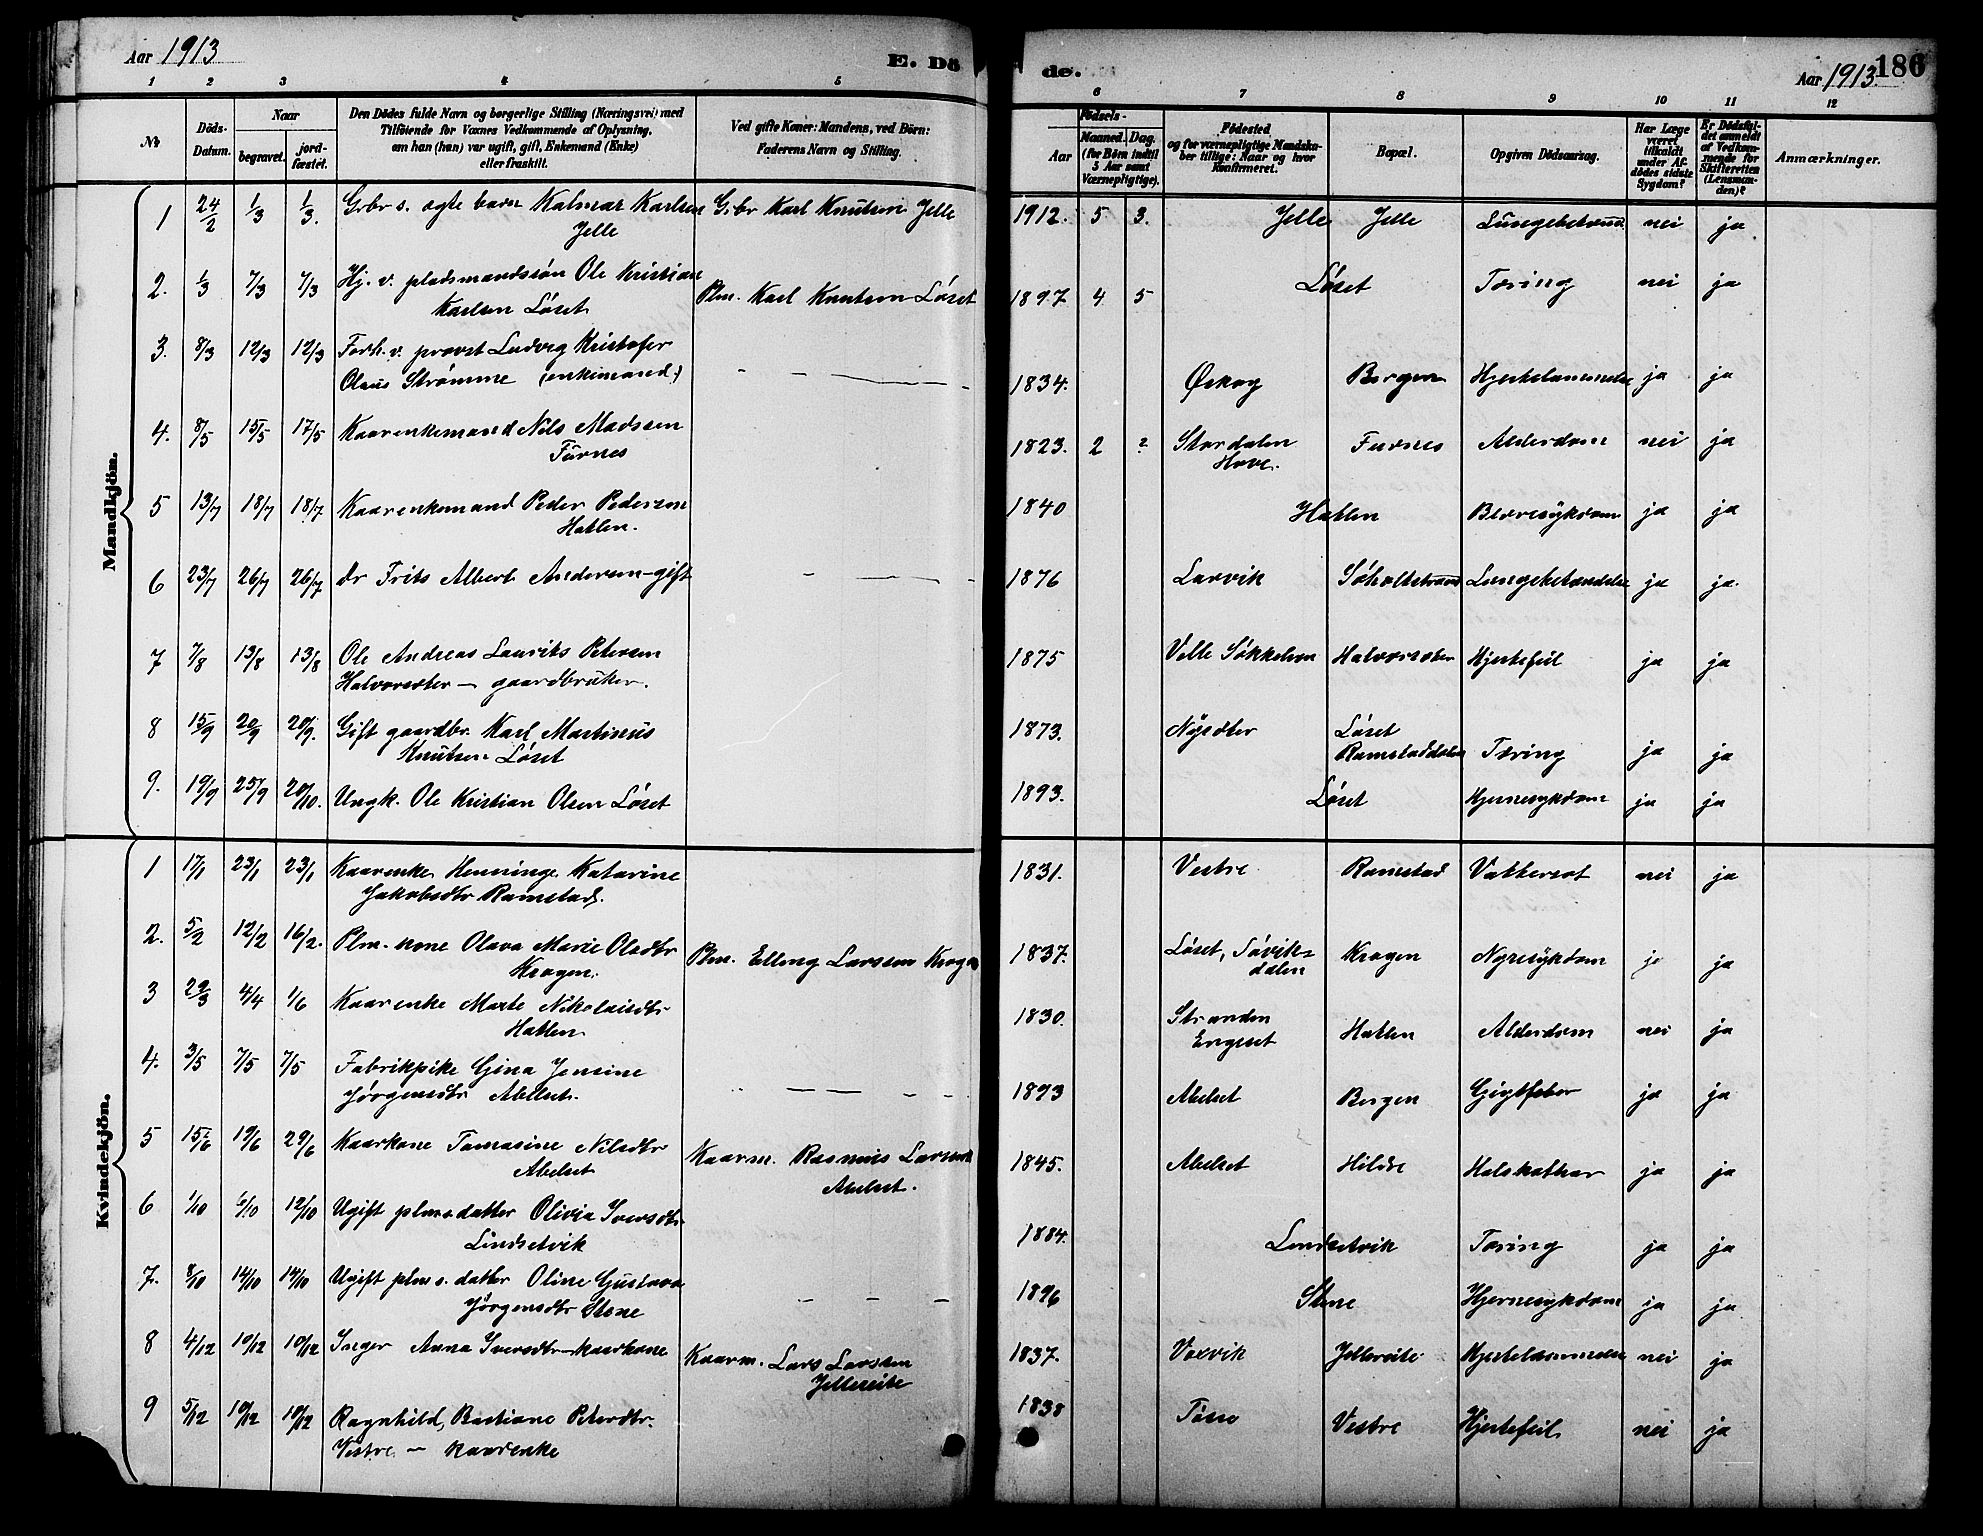 Aar 1913
E. Dö
de.
Aar 1913.
186
1 2 3 4 5
6 7 8 9 10 11 12
No
Döds-
Datum.
Naar
begravet.
jord-
fæstet.
Den Dödes fulde Navn og borgerlige Stilling (Næringsvei) med
Tilföiende for Voxnes Vedkommende af Oplysning,
om han (hun) var ugift, gift, Enkemand (Enke)
eller fraskilt.
Ved gifte Koner: Mandens, ved Börn:
Faderens Navn og Stilling.
Födsels-
Aar
Maaned.
Dag.
(for Börn indtil
Aar samt
Værnepligtige).
Födested
og for værnepligtige Mandska-
ber tillige: Naar og hvor
Konfirmeret.
Bopæl.
Opgiven Dödsaarsag.
Har Læge
været
tilkaldt
under Af-
dödes sidste
Sygdom?
Er Dödsfal-
det anmeldt
af Vedkom-
mende for
Skifteretten
(Lensman-
den)?
Anmærkninger.
Mandkjön.
1 24/2 1/3 1/3. Grbr s. egte barn Kalmar Karlsen
Jelle
Grbr Karl Knutsen Jelle
1912. 5 3. Jelle Jelle nei ja
2. 1/3 7/3 7/3 Hj. v. pladsmandssøn Ole Kristian
Karlsen Løset
Plm. Karl Knutsen Løset
1897 4 5 Løset Tæring nei ja
3. 8/3 12/3 12/3 Forh. v. provst Ludvig Kristofer
Olaus Strømme (enkemand.)
1834. Ørskog Bergen Hjertelammelse ja ja
4. 8/5 15/5 17/5 Kaarenkemand Nils Madssen
Furnes
1823. 2 ? Stordalen
Hove.
Furnes Alderdom nei ja
5 13/7 18/7 18/7 Kaarenkemand Peder Pedersen
Hatlen.
1840 Hatlen Blæresykdom ja ja
6 23/7 26/7 26/7 dr Frits Albert Andersen - gift
1876 Larvik Søholtstrand Lungebetændelse ja ja.
7 7/8 13/8 13/8 Ole Andreas Laurits Petersen
Halvorsæter - gaardbruker.
1875 Velle Søkkelven Halvorsæter Hjertefeil ja ja
8 15/9 20/9 20/9. Gift gaardbr. Karl Martinus
Knutsen Løset
1873. Nysæter Løset
Ramstaddalen Tæring ja ja
9. 19/9 25/9 20/10. Ungk. Ole Kristian Olsen Løset
1893. Løset Hjernesykdom ja ja
Kvindekjön.
1 17/1 23/1 23/1 Kaarenke Henninge Katarine
Jakobsdtr Ramstad.
1831. Vestre Ramstad Vattersot nei ja
2. 5/2 12/2 16/2. Plm. kone Olava Marie Olsdtr
Kragen.
Plm. Elling Larssen Kragen
1837. Løset, Søviks-
dalen
Kragen Nyresykdom ja ja
3 29/3 4/4 1/6 Kaarenke Marte Nikolaisdtr
Hatlen
1830. Stranden
Engeset
Hatlen Alderdom nei ja
4. 3/5 7/5 7/5 Fabrikpike Gina Jensine
Jørgensdtr Abelset.
1893 Abelset Bergen Gigtfeber ja ja
5 15/6 19/6 29/6 Kaarkone Tomasine Nilsdtr
Abelset
Kaarm. Rasmus Larssen
Abelset.
1845. Abelset Hildre Halskathar ja ja
6 1/10 6/10 12/10 Ugift plms datter Olivia Iversdtr
Lindsetvik
1884. Lindsetvik Tæring ja ja
7. 8/10 14/10 14/10 Ugift plm s. datter Oline Gustava
Jørgensdtr Stene
1896 Stene Hjernesykdom ja ja
8 4/12 10/12 10/12 Inger Anna Iversdtr - kaarkone
Kaarm. Lars Larssen
Jellereite
1837. Vaxvik Jellereite Hjertelammelse nei ja
9 5/12 10/12 10/12 Ragnhild, Bastiane Petersdtr.
Vestre - kaarenke
1838 Vestre Hjertefeil nei ja